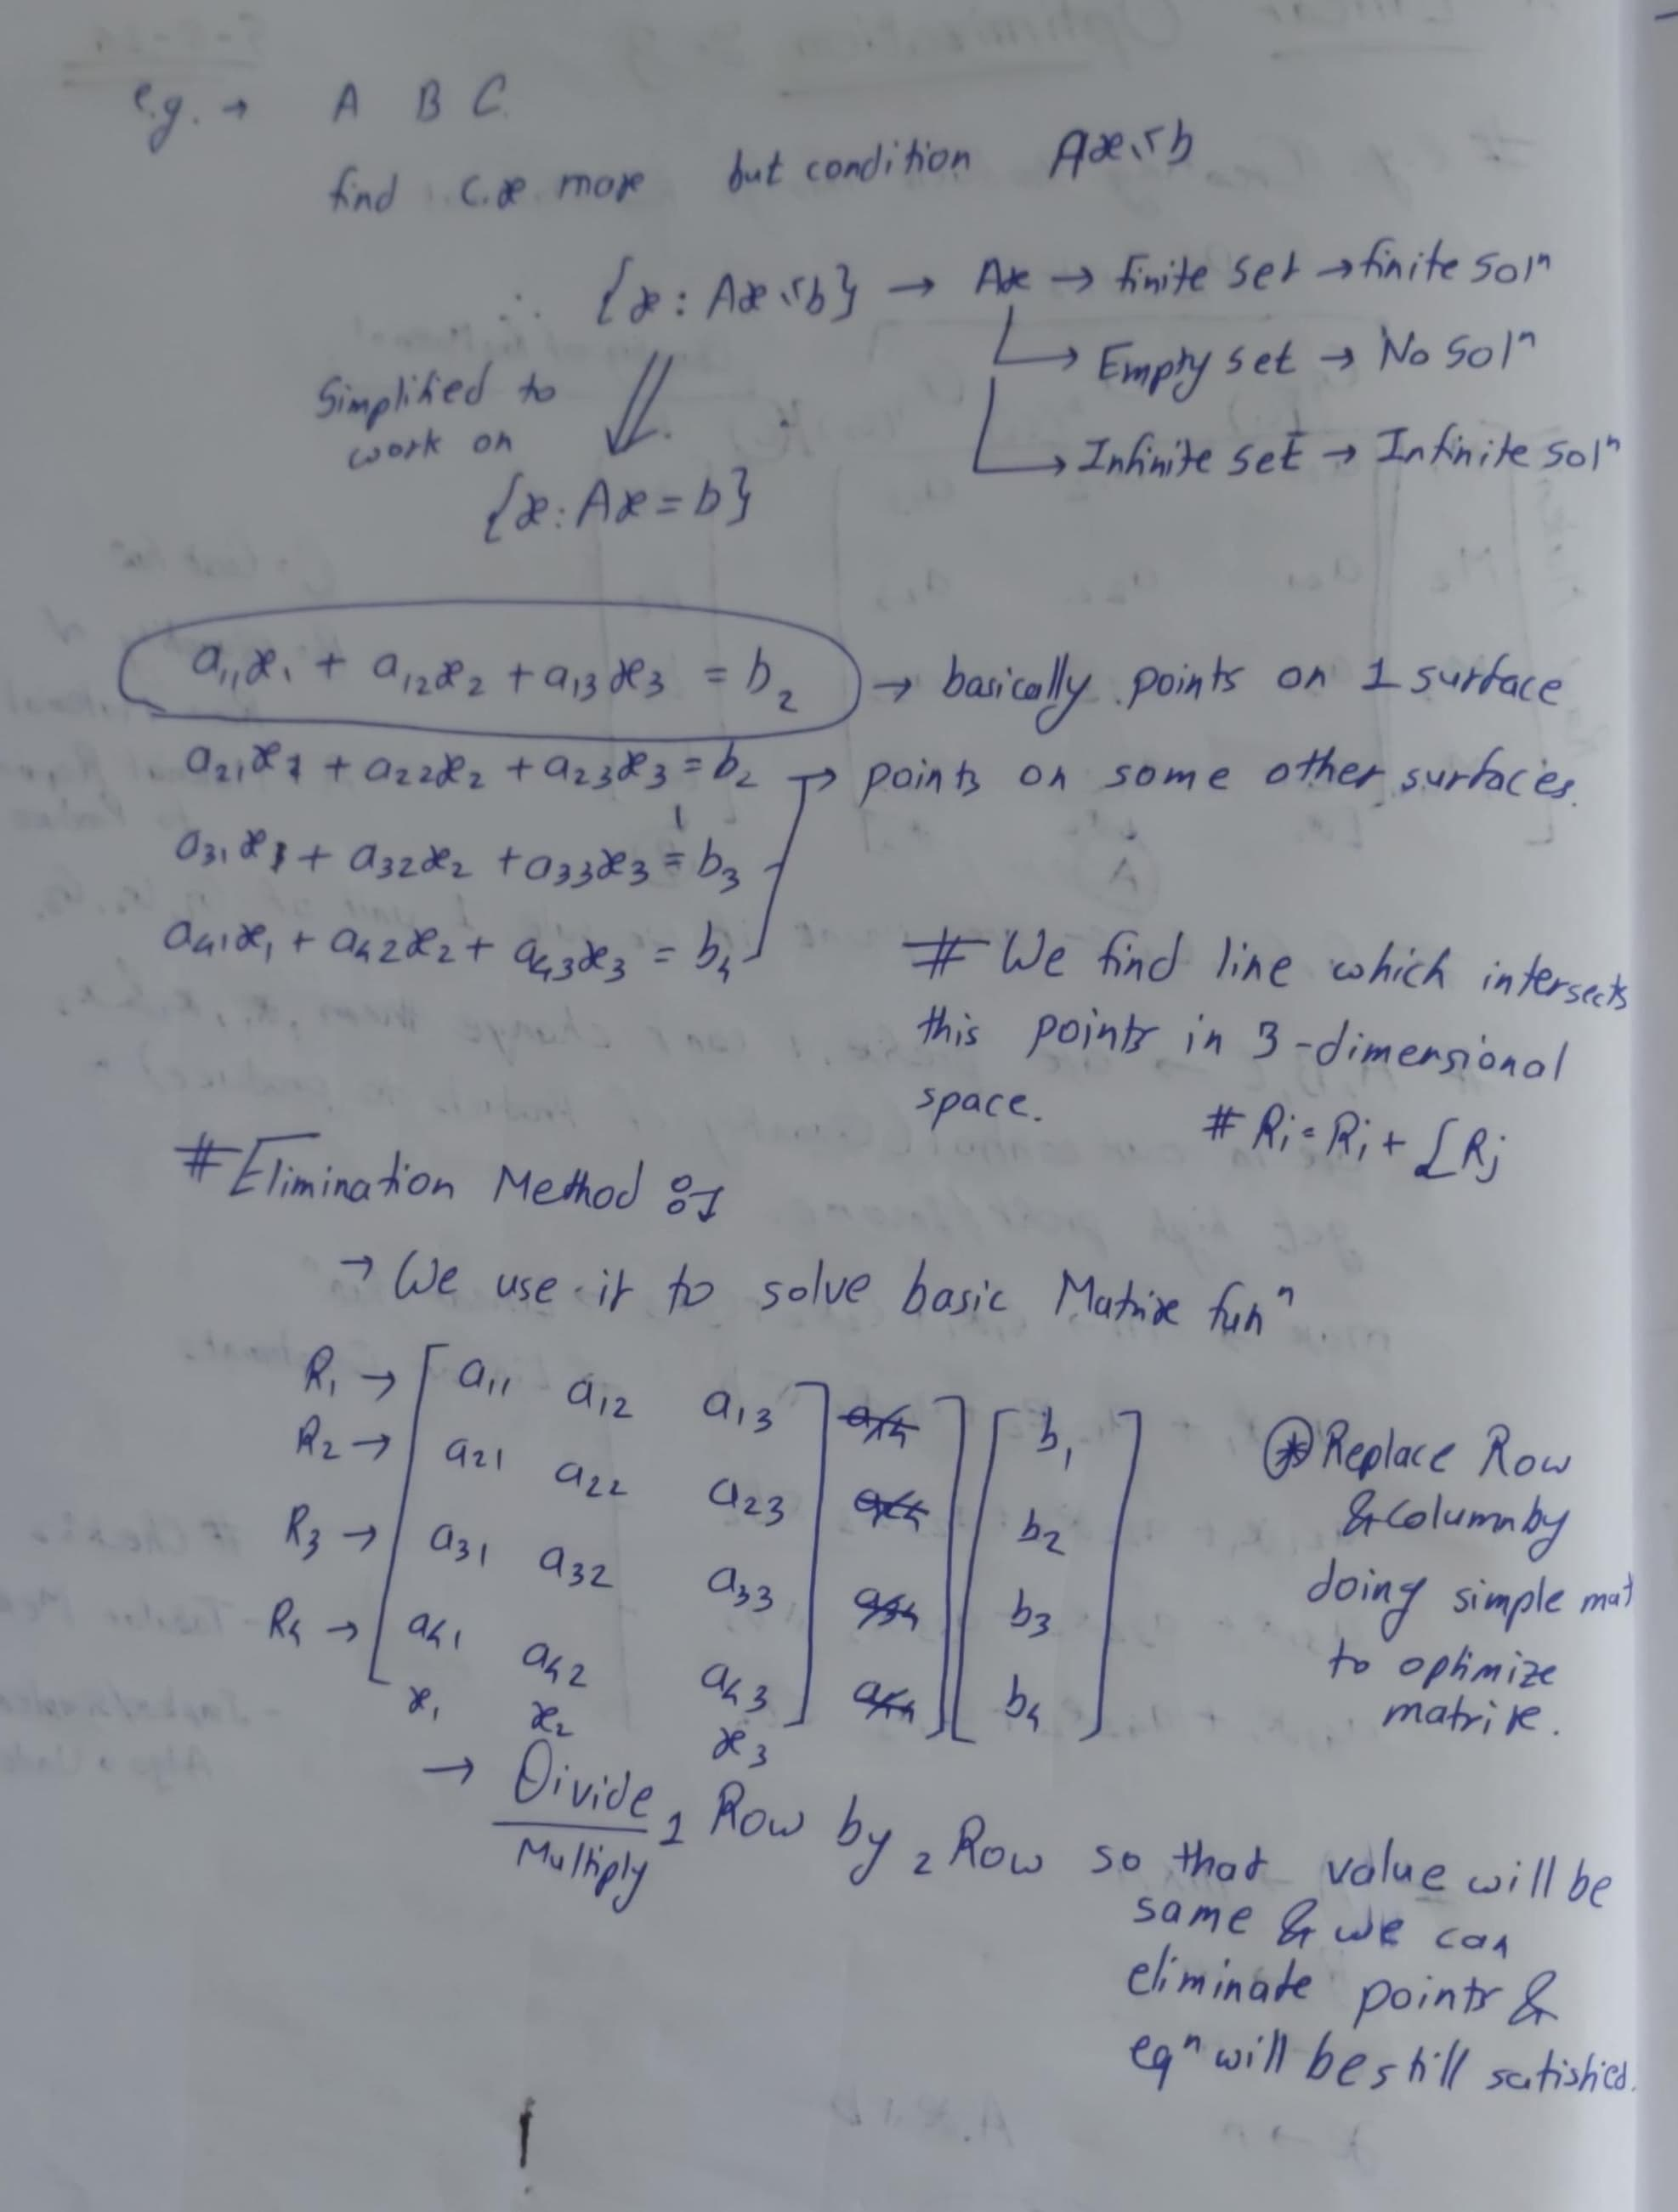 e.g. → A B C
find C.x more but condition Ax ≤ b
∴ {x : Ax ≤ b} → Ax → finite set → finite solⁿ
↳ Empty set → No solⁿ
↳ Infinite set → Infinite solⁿ
Simplified to
work on
{x : Ax = b}
a₁₁x₁ + a₁₂x₂ + a₁₃x₃ = b₂ → basically points on 1 surface
a₂₁x₁ + a₂₂x₂ + a₂₃x₃ = b₂ → points on some other surfaces.
a₃₁x₁ + a₃₂x₂ + a₃₃x₃ = b₃
a₄₁x₁ + a₄₂x₂ + a₄₃x₃ = b₄
# We find line which intersects
this points in 3-dimensional
space.
# Rᵢ = Rᵢ + ∑Rⱼ
# Elimination Method :-
→ We use it to solve basic Matrix funⁿ
R₁ → a₁₁ a₁₂ a₁₃ a₁₄ b₁
R₂ → a₂₁ a₂₂ a₂₃ a₂₄ b₂
R₃ → a₃₁ a₃₂ a₃₃ a₃₄ b₃
R₄ → a₄₁ a₄₂ a₄₃ a₄₄ b₄
x₁ x₂ x₃
* Replace Row
& column by
doing simple mat
to optimize
matrix.
→ Divide 1 Row by 2 Row so that value will be
Multiply
same & we can
eliminate points &
eqⁿ will be still satisfied.